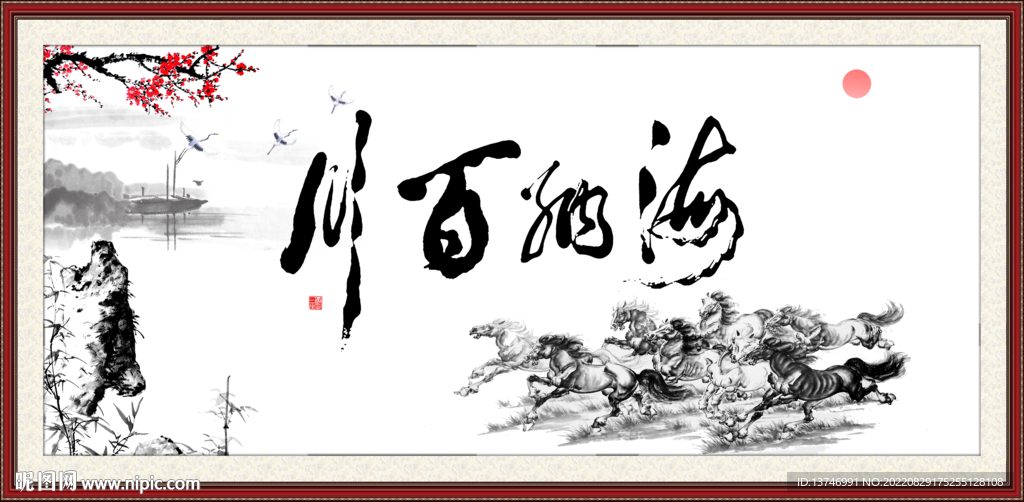 海纳百川
昵图网 www.nipic.com
ID:13746991 NO.20220829175255128108